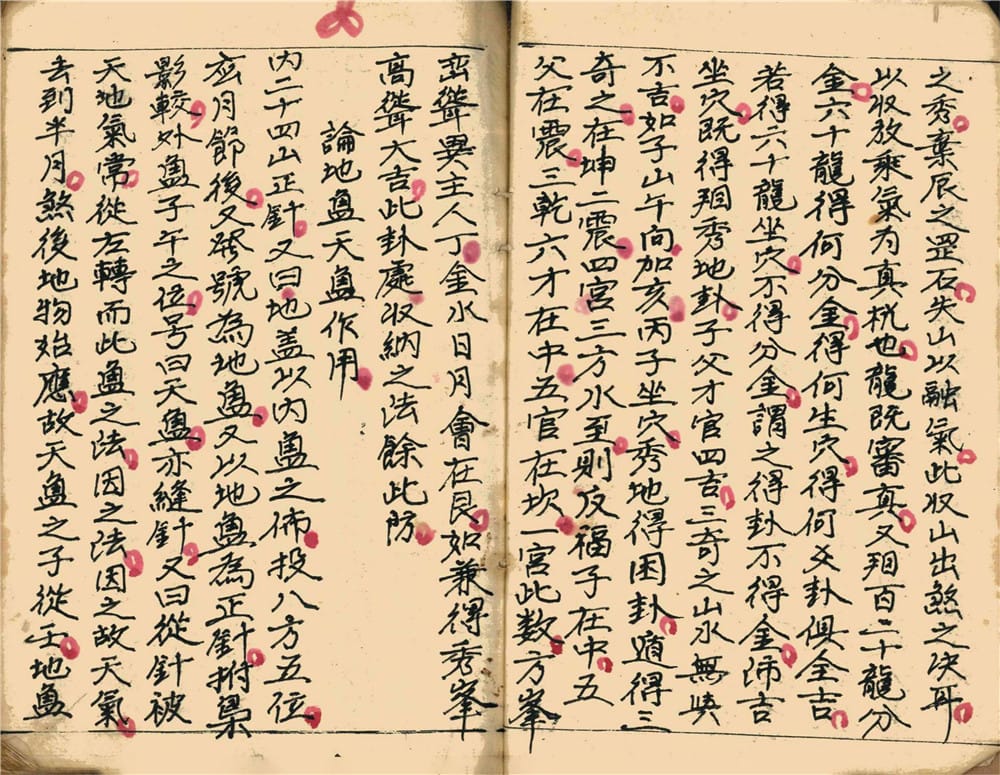 之秀棄辰之罡石失山以融氣此收山出煞之决耳
以收放乘氣为真机也龍既審真又剏百二十龍分
金六十龍得何分金得何生穴得何爻卦俱全吉
若得六十龍坐穴不得分金謂之得卦不得金沛吉
坐穴既得剏秀地卦子父才官四吉三奇之山水無
不吉如子山午向加亥丙子坐穴秀地得困卦遁得三
奇之在坤二震四宮三方水至則反福子在中五
父在震三乾六才在中五官在坎一宮此数方峯
巒聳異主人丁金水日月會在艮如兼得秀峯
高聳大吉此卦處收納之法餘此防
論地盘天盘作用
内二十四山正針又曰地盖以内盘之佈投八方五位
亥月節後又號為地盘又以地盘為正針拊
影較外盘子午之位号曰天盘亦縫針又曰從針被
天地氣常從左轉而此盘之法因之法因之故天氣
去到半月煞後地物始應故天盘之子從壬地盘